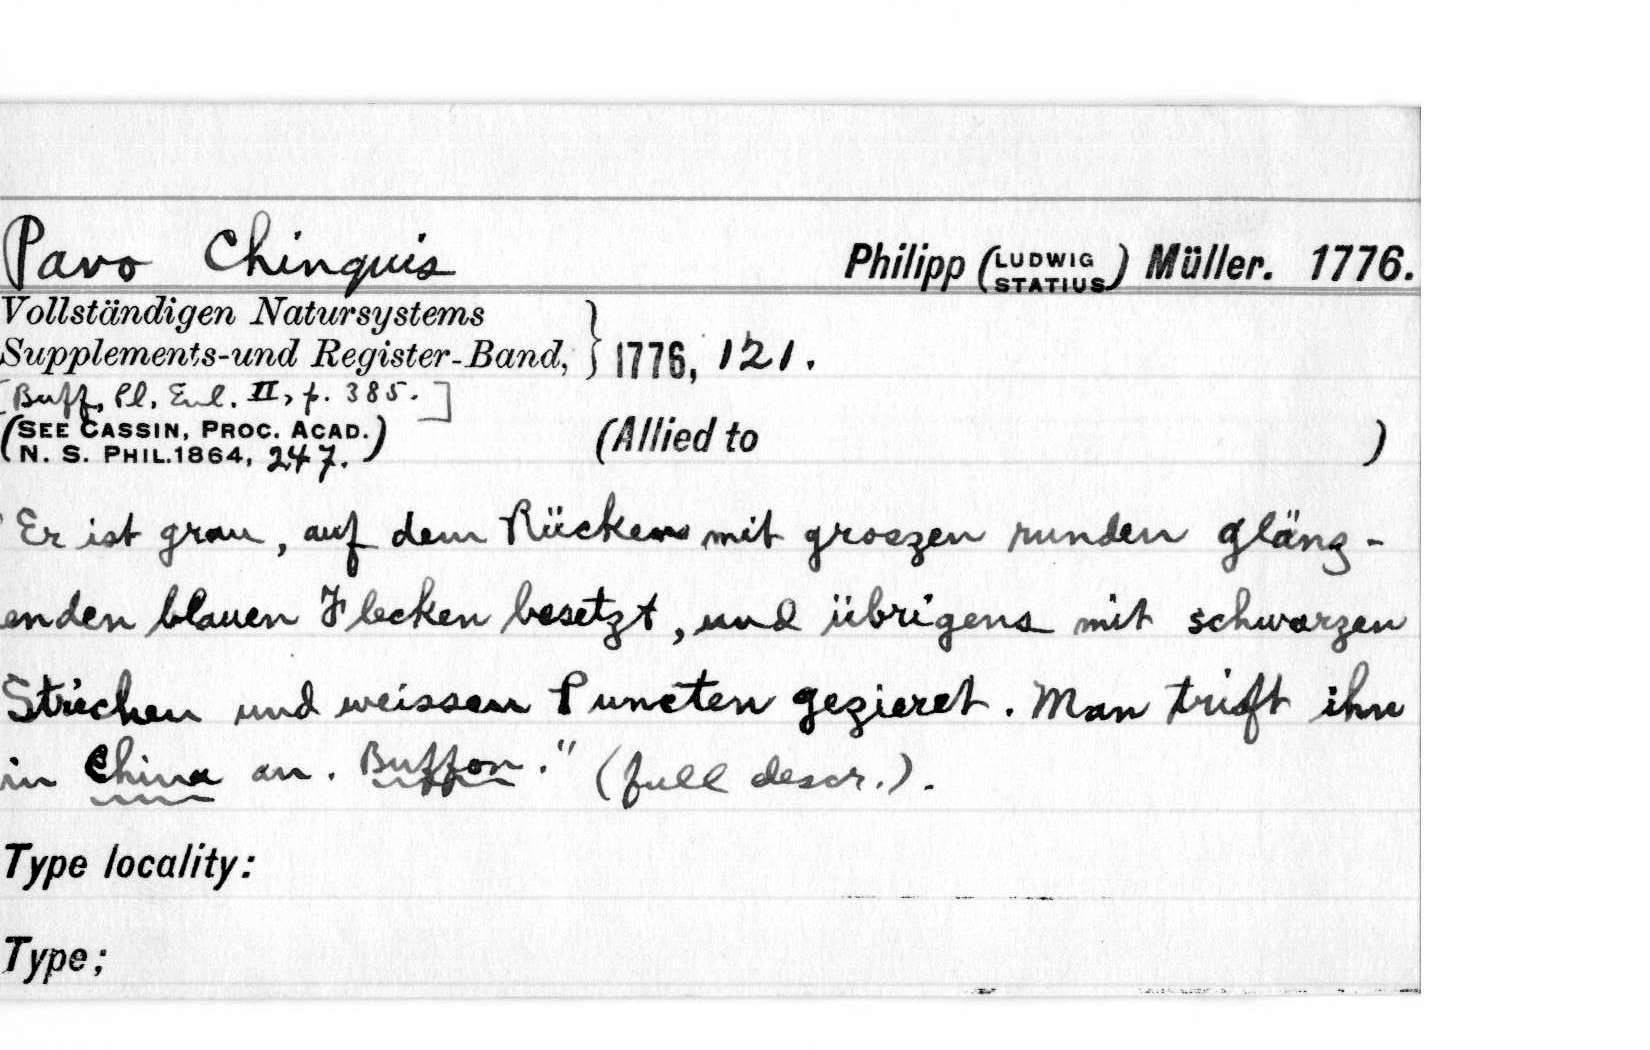 Pavo Chinquis Philipp (LUDWIG STATIUS) Müller. 1776.
Vollständigen Natursystems
Supplements-und Register-Band, } 1776, 121.
[Buff, Pl. Enl. II, p. 385.]
(SEE CASSIN, PROC. ACAD.
N. S. PHIL. 1864, 247.) (Allied to )
"Er ist grau, auf dem Rücken mit groszen runden gläng-
enden blauen Flecken besetzt, und übrigens mit schwarzen
Strichen und weissen Puncten gezieret. Man trift ihn
in China an. Buffon." (full descr.).
Type locality:
Type;